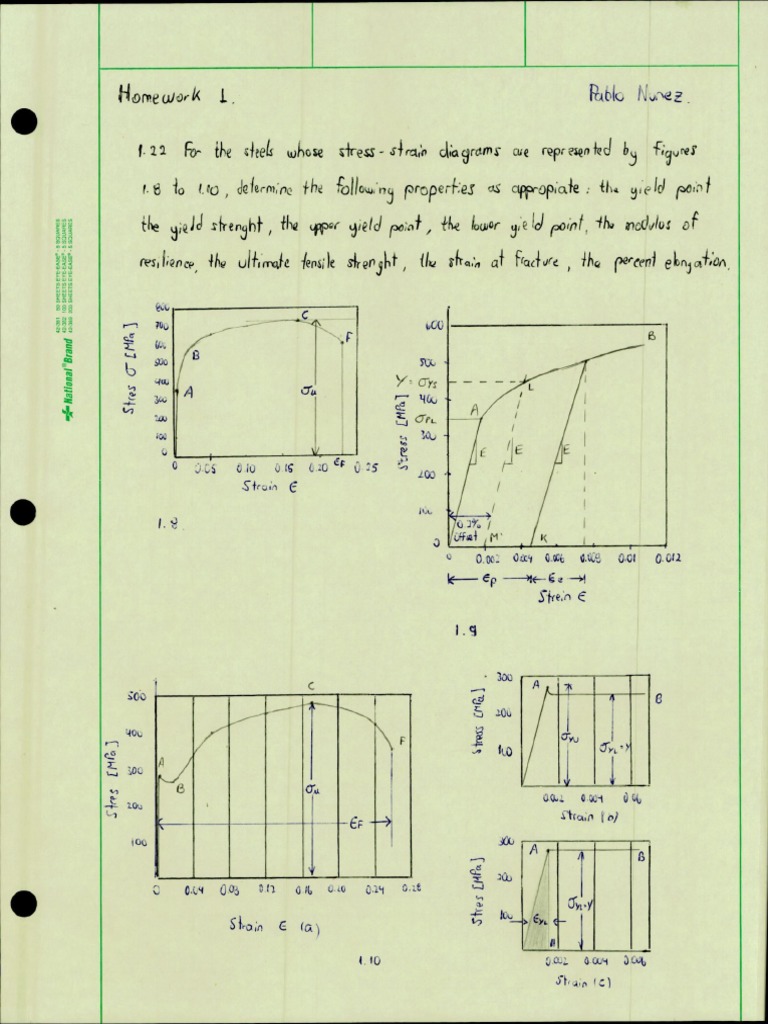 Homework 1.
Pablo Nunez.
1.22 For the steels whose stress-strain diagrams are represented by figures
1.8 to 1.10, determine the following properties as appropiate: the yield point
the yield strenght, the upper yield point, the lower yield point, the modulus of
resilience, the ultimate tensile strenght, the strain at fracture, the percent elongation.
National® Brand
Stres σ [MPa]
800
700
600
500
400
300
200
100
0
A
B
C
F
σu
0
0.05
0.10
0.15
0.20
εF
0.25
Strain ε
1.8.
Stress [MPa]
600
500
Y = σYS
400
σPL
300
200
100
0
A
L
B
E
E
E
0.2%
Offset
M
K
0
0.002
0.004
0.006
0.008
0.01
0.012
εp
εe
Strein ε
1.9
Stres [MPa]
500
400
300
200
100
A
B
C
F
σu
εF
0
0.04
0.08
0.12
0.16
0.20
0.24
0.28
Strain ε (a)
1.10
Stress [MPa]
300
200
100
A
B
σYU
σYL=Y
0.002
0.004
0.06
Strain (b)
Stres [MPa]
300
200
100
A
B
σYL=Y
εYL
0.002
0.004
0.006
Strain (c)